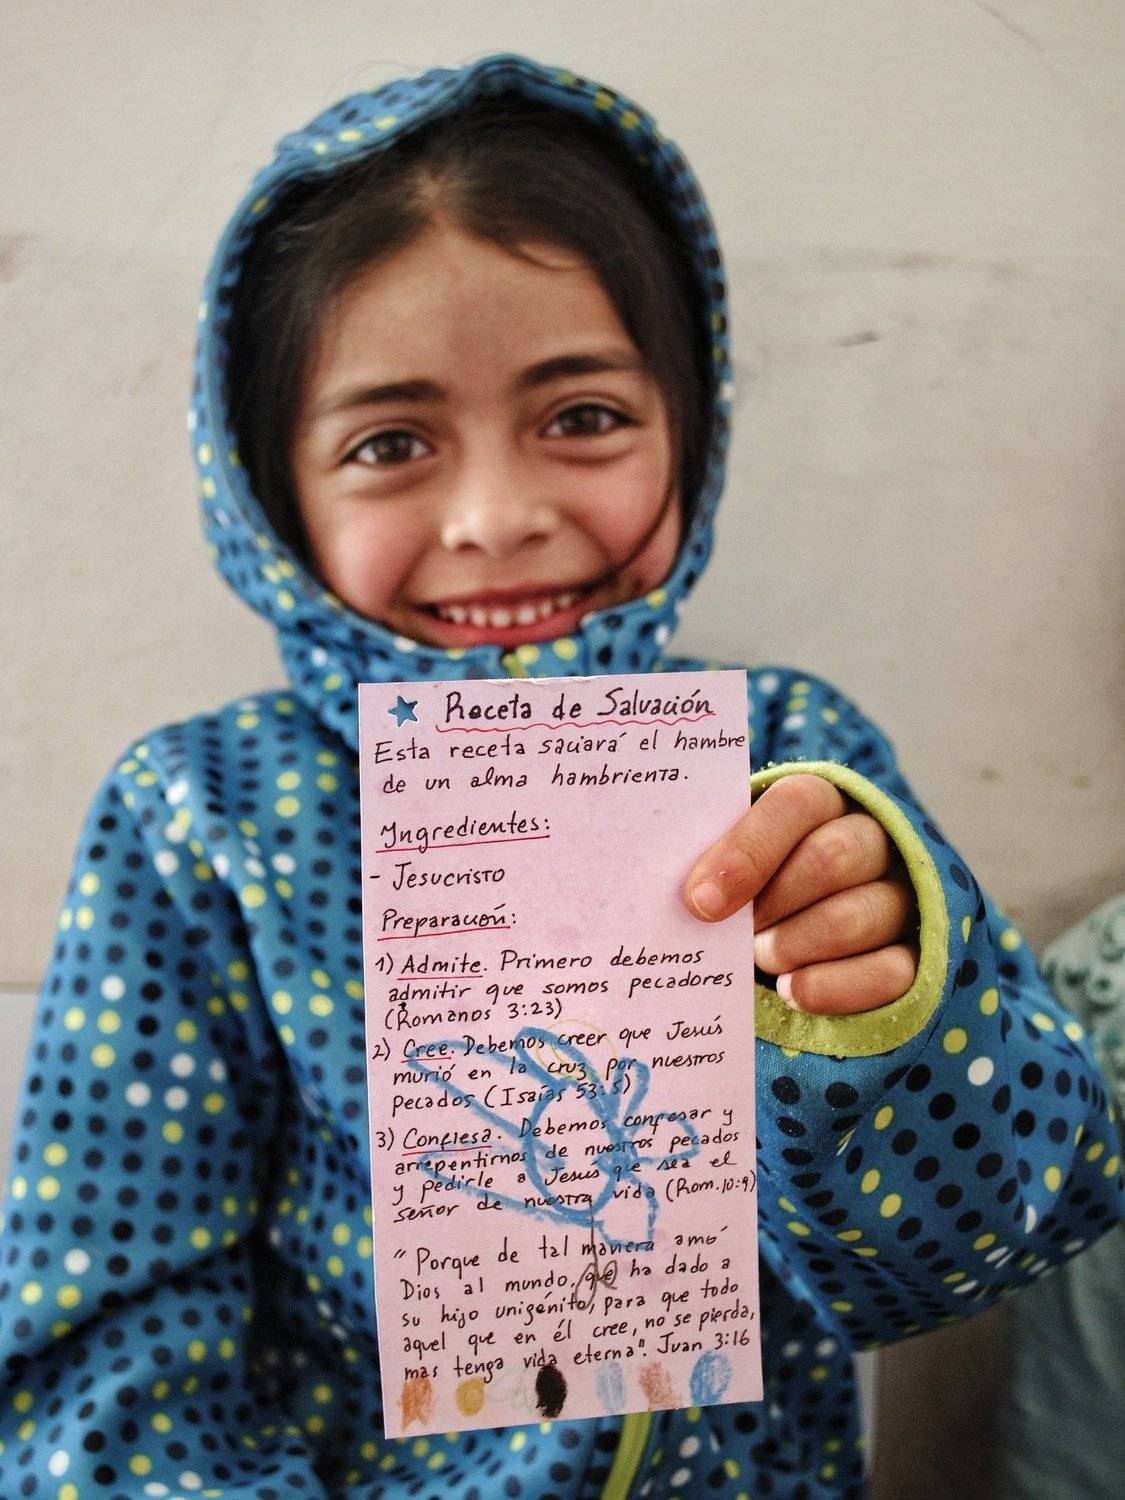 Receta de Salvación
Esta receta saciará el hambre
de un alma hambrienta.
Ingredientes:
- Jesucristo
Preparación:
1) Admite. Primero debemos
admitir que somos pecadores
(Romanos 3:23)
2) Cree. Debemos creer que Jesús
murió en la cruz por nuestros
pecados (Isaías 53:5)
3) Confiesa. Debemos confesar y
arrepentirnos de nuestros pecados
y pedirle a Jesús que sea el
señor de nuestra vida (Rom. 10:9)
"Porque de tal manera amó
Dios al mundo, que ha dado a
su hijo unigénito, para que todo
aquel que en él cree, no se pierda,
mas tenga vida eterna". Juan 3:16